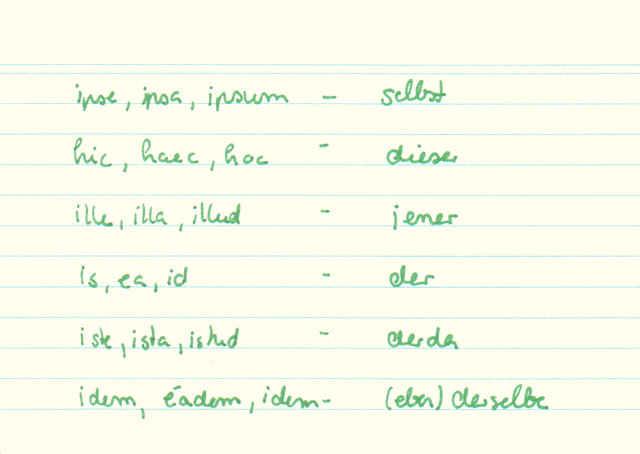 ipse, ipsa, ipsum - selbst
hic, haec, hoc - dieser
ille, illa, illud - jener
is, ea, id - der
iste, ista, istud - derda
idem, éadem, idem - (eben) derselbe